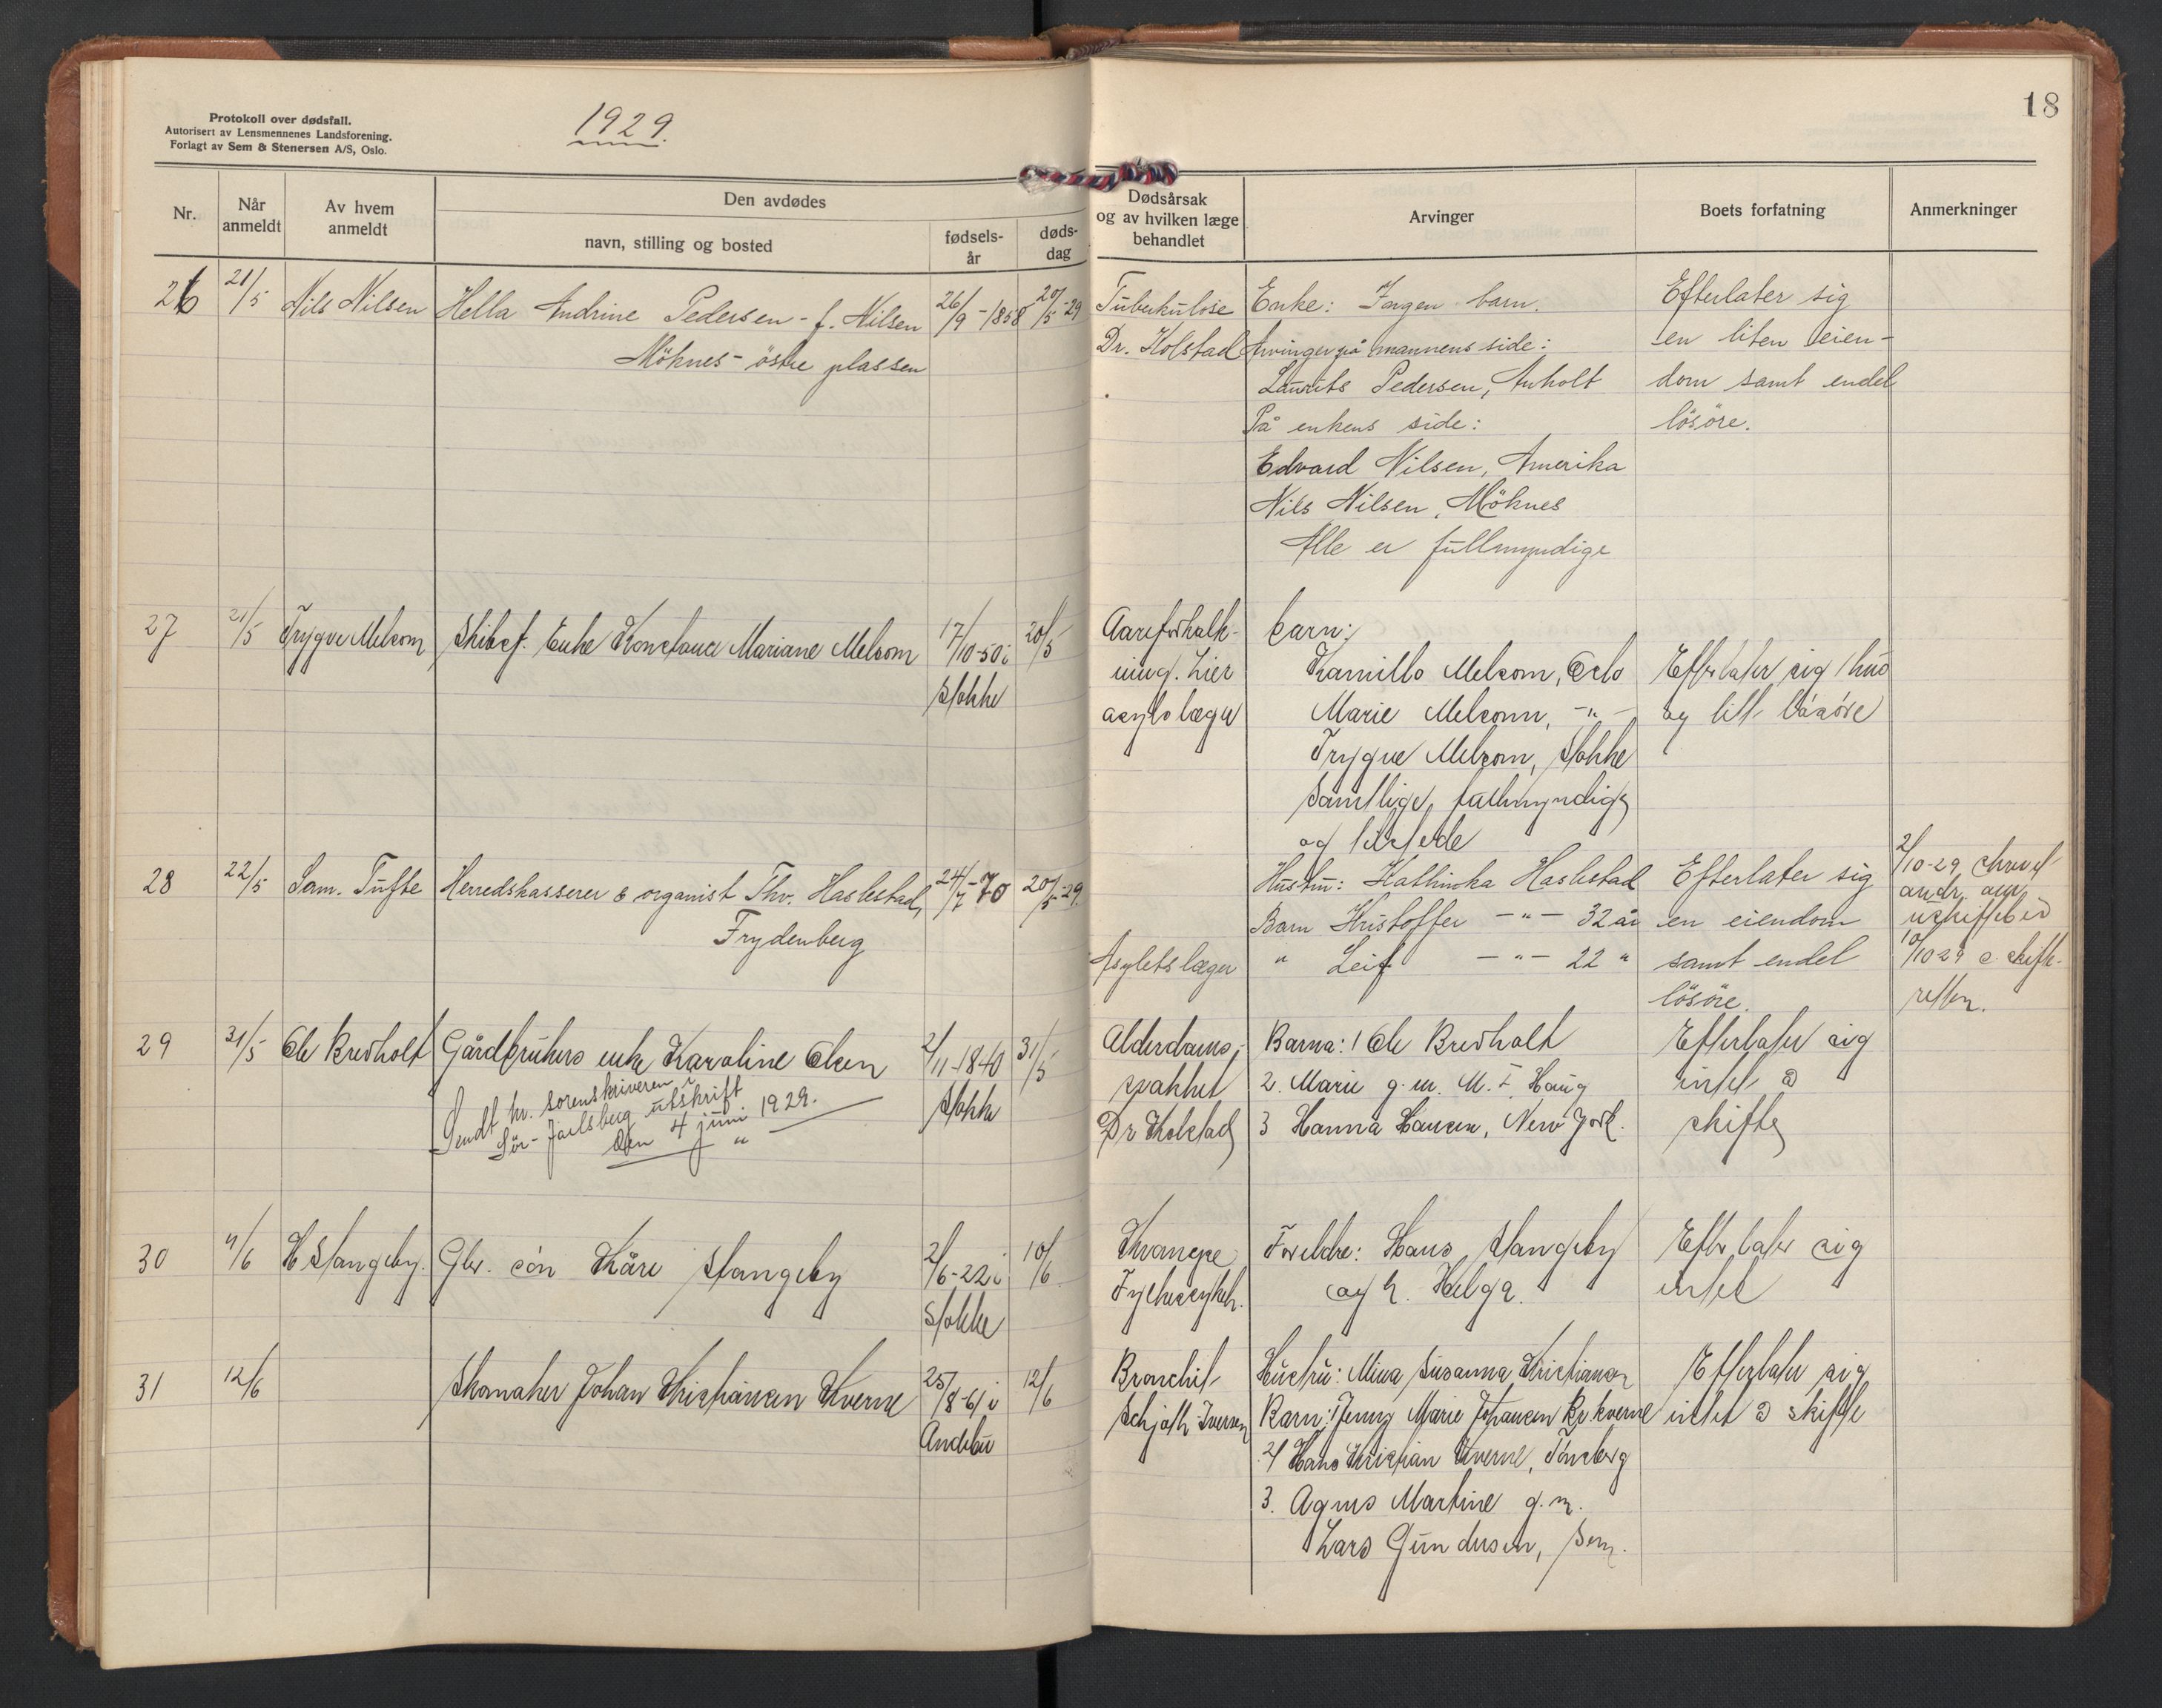 Protokoll over dødsfall.
Autorisert av Lensmennenes Landsforening.
Forlagt av Sem & Stenersen A/S, Oslo.
1929.
18
Nr.
Når anmeldt
Av hvem anmeldt
Den avdødes
navn, stilling og bosted
fødsels-år
døds-dag
Dødsårsak og av hvilken læge behandlet
Arvinger
Boets forfatning
Anmerkninger
26 21/5 Nils Nilsen Hella Andrine Pedersen - f. Nilsen 26/9 - 1858 20/5-29
Möknes - östre plassen
Tuberkulose
Dr. Kolstad
Enke: Ingen barn.
Arvinger på mannens side:
Laurits Pedersen, Anholt
På enkens side:
Edvard Nilsen, Amerika
Nils Nilsen, Möknes
Alle er fullmyndige
Efterlater sig
en liten eien-
dom samt endel
lösöre.
27 21/5 Trygve Melsom Skibsf. Enke Konstance Mariane Melsom 17/10-50 i 20/5
Stokke
Aareforkalk-
ning. Lier
asyls læge
barn:
Kamillo Melsom, Oslo
Marie Melsom, -"-
Trygve Melsom, Stokke
Samtlige fullmyndige
og tilstede
Efterlater sig 1 hus
og litt lösöre
28 22/5 Sam. Tufte Herredskasserer & organist Thv. Haslestad, 24/7-70 20/5-29.
Frydenberg
Asylets læger
Hustru: Kathinka Haslestad
Barn Kristoffer -"- 32 år
" Leif -"- 22 "
Efterlater sig
en eiendom
samt endel
lösöre.
2/10-29
andr. om
uskiftet
10/10 29 skifte-
retten.
29 31/5 Ole Bredholt Gårdbrukers enke Karoline Olsen 2/11-1840 31/5
Stokke
Sendt hr. sorenskriveren i
Sör-Jarlsberg utskrift
den 4 juni 1929.
"
Alderdoms-
svakhet
Dr Kolstad
Barna: 1 Ole Bredholt
2. Marie g. m. M. I. Haug
3 Hanna Hansen, New York.
Efterlater sig
intet å
skifte
30 11/6 H Stangeby. Gbr. sön Kåre Stangeby 2/6-22 i 10/6
Stokke
Foreldre: Hans Stangeby
og h. Helga.
Efterlater sig
intet
31 12/6 Skomaker Johan Kristiansen Kverne 25/8-61 i 12/6
Andebu
Bronchit
Schjøth-Iversen
Hustru: Mina Susanna Kristiansen
Barn: 1 Jenny Marie Johansen Kverne
2/ Hans Kristian Kverne, Tönsberg
3. Agnes Martine g. m.
Lars Gundersen, Sem.
Efterlater sig
intet å skifte